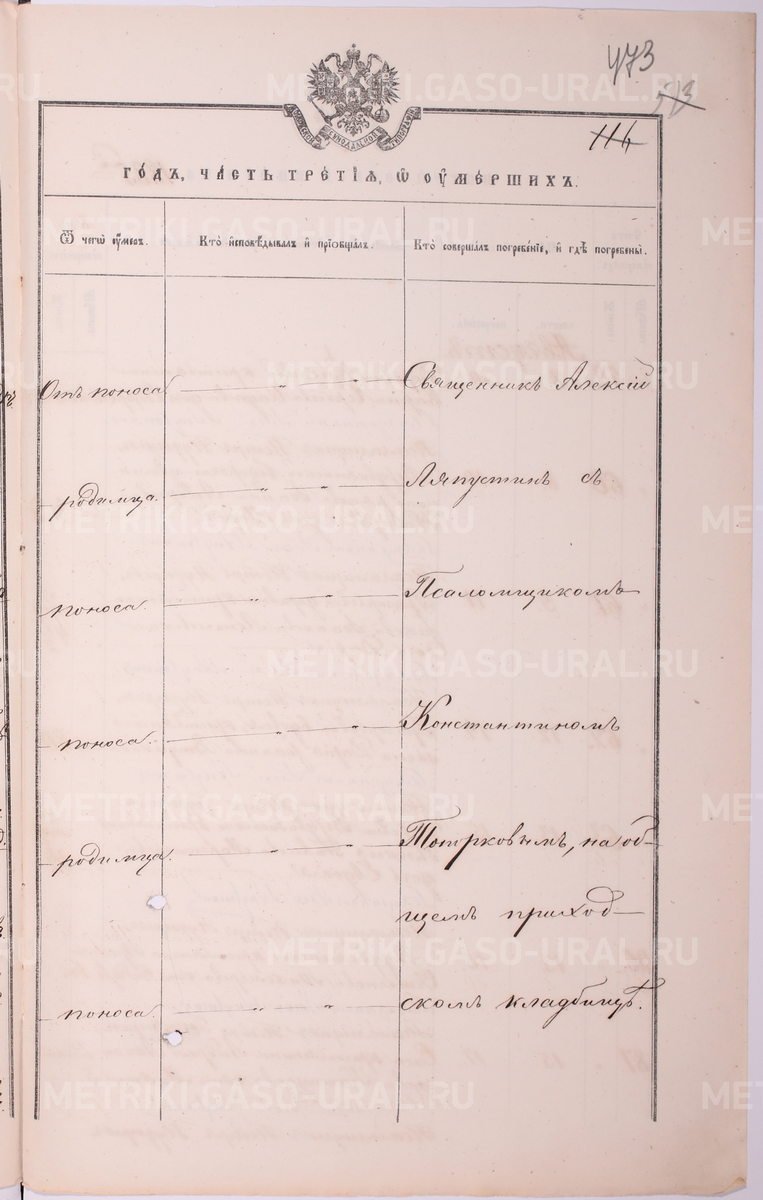 473
513
116
ГОДЪ, ЧАСТЬ ТРЕТІѦ, Ѿ ОУМЕРШИХЪ.
Ѿ чегѡ оумеръ.
Кто исповѣдывалъ и пріобщалъ.
Кто совершалъ погребеніе, и гдѣ погребены.
Отъ поноса " " Священникъ Алексій
родимца. " " Ляпустинъ съ
поноса. " " Псаломщикомъ
поноса. " " Константиномъ
родимца. " " на об-
щемъ приход-
поноса. " " скомъ кладбищѣ.
METRIKI.GASO-URAL.RU